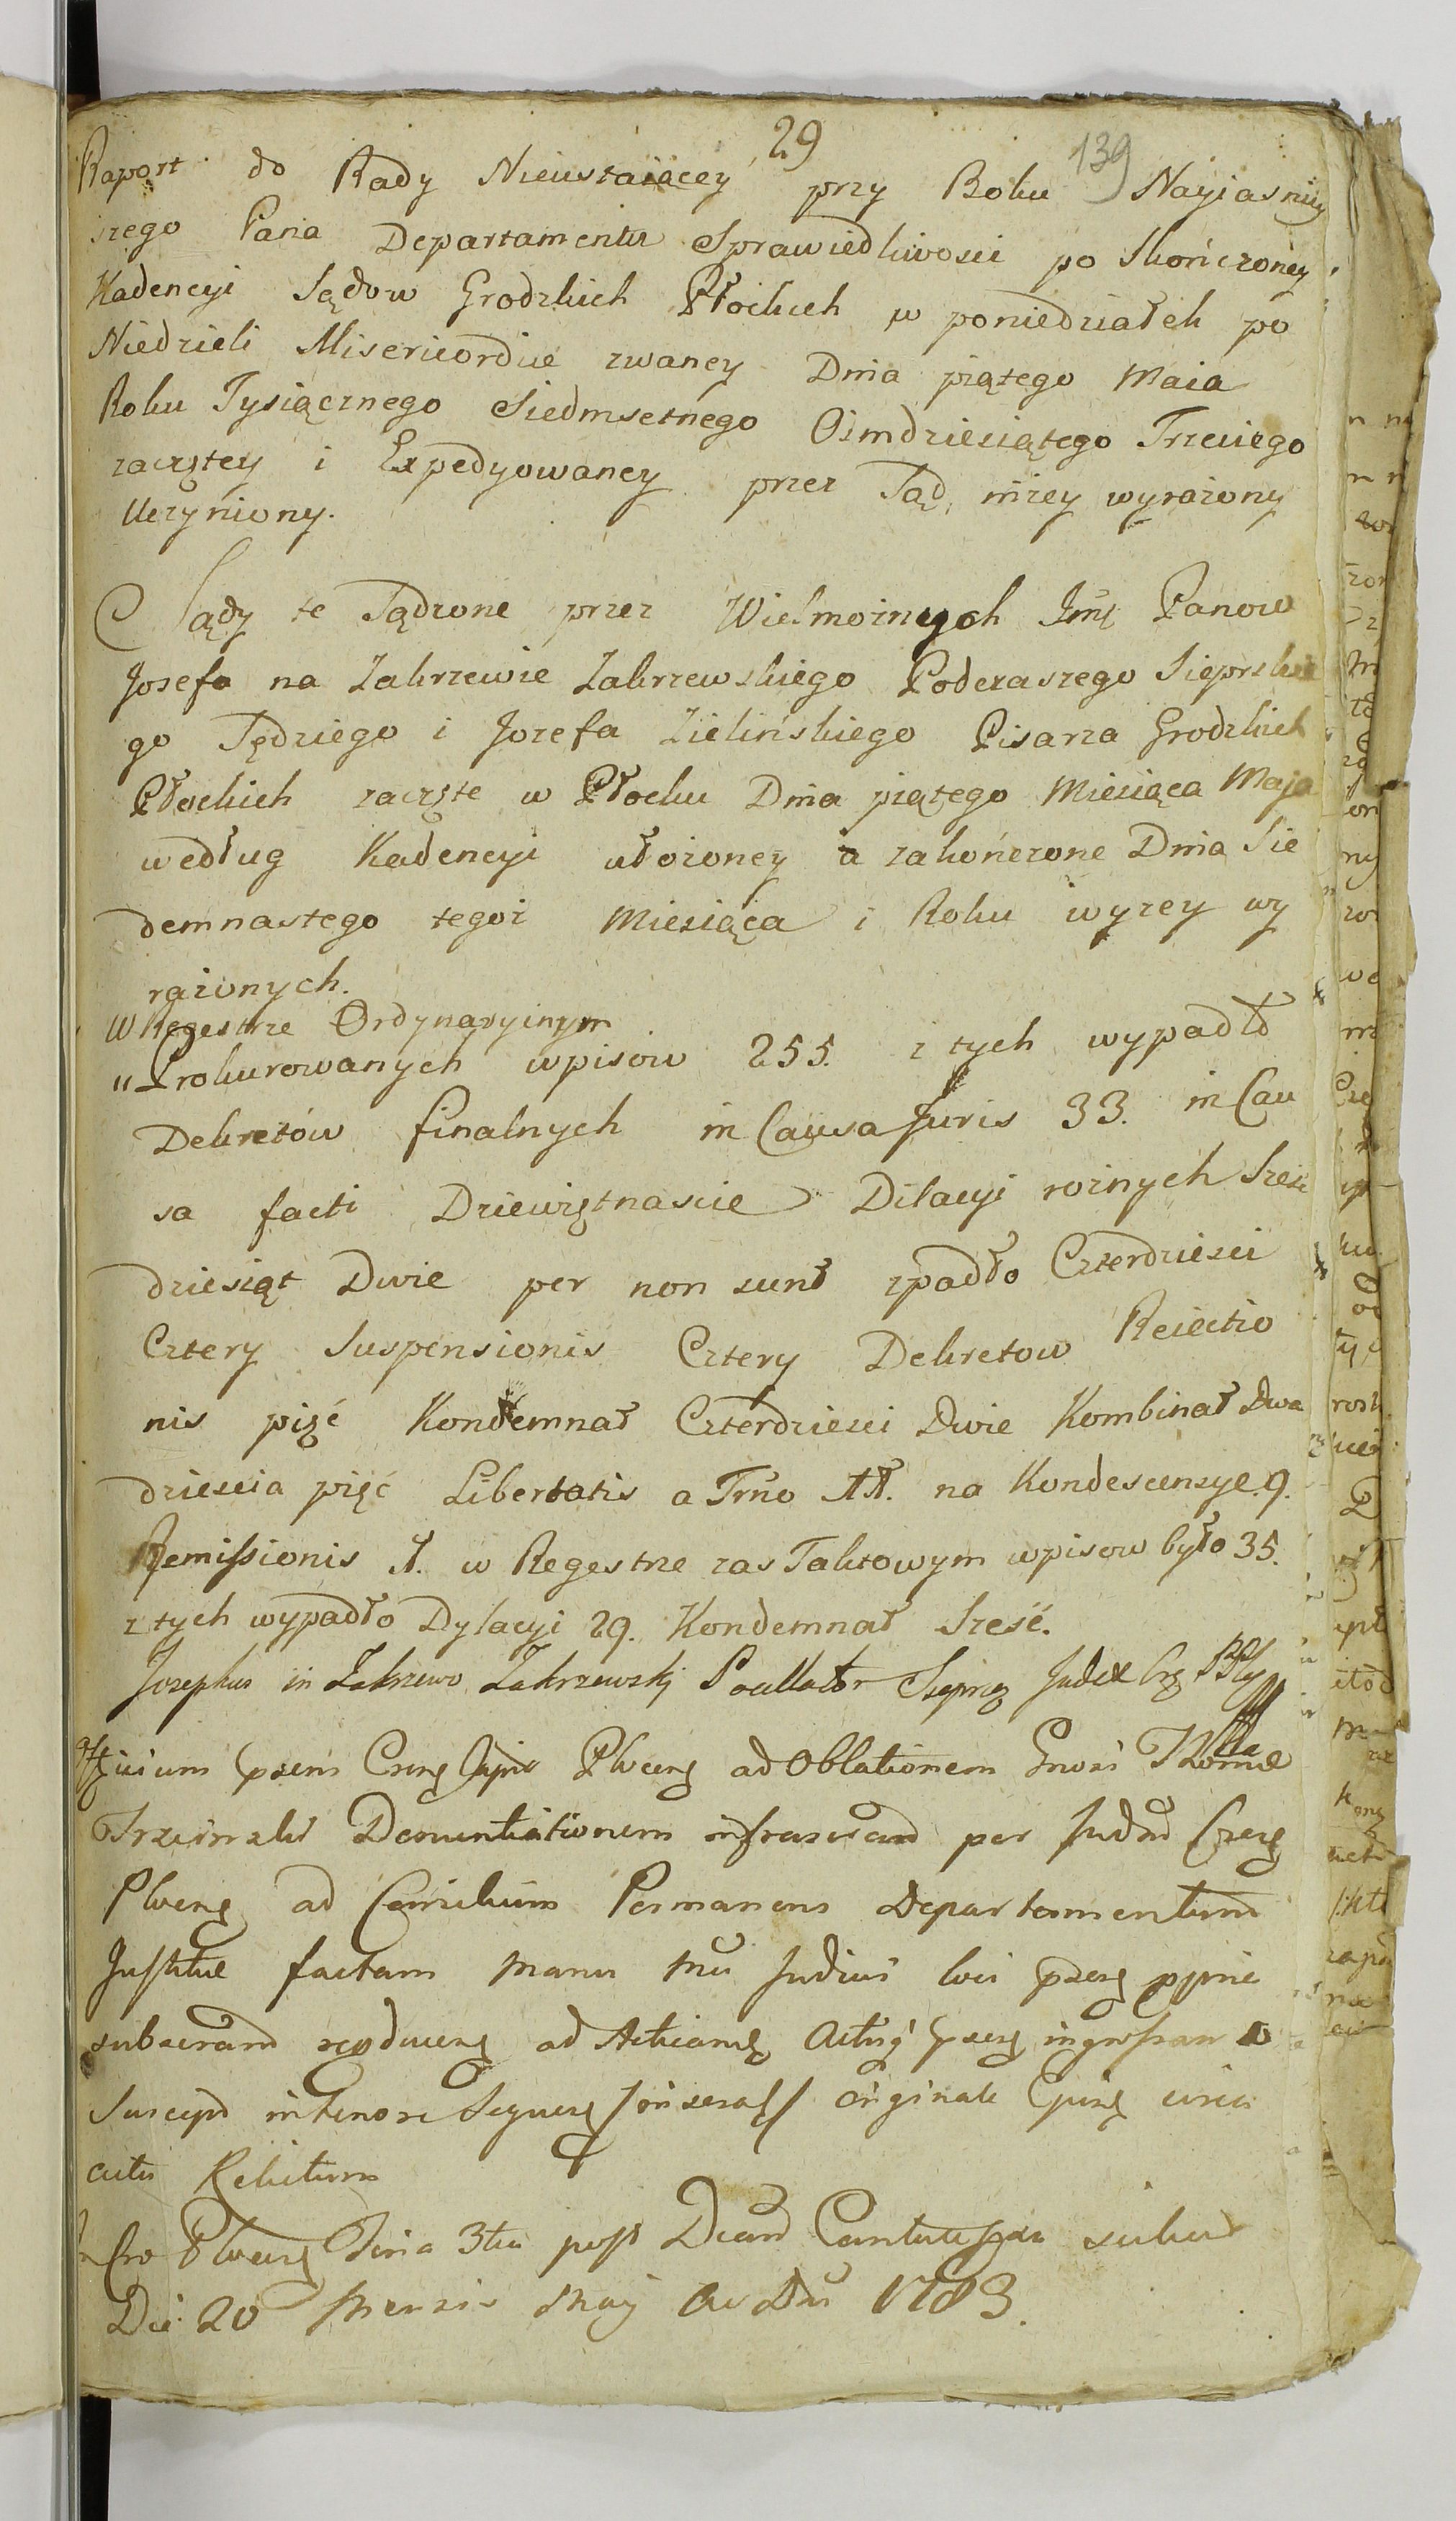 29
139
Raport do Rady Nieustaiącey przy Boku Nayiasniey
szego Pana Departamentu Sprawiedliwosci po Skończoney
Kadencyi Sądow Grodzkich Płockich w poniedziałek po
Niedzieli Misericordiae zwaney Dnia piątego Maia
Roku Tysiącznego Siedmsetnego Osmdziesiątego Trzeciego
zaczętey i Expedyowaney przez Sąd niżey wyrażony
Uczyniony.
Sądy te Sądzone przez Wielmożnych Jmę Panow
Josefa na Zakrzewie Zakrzewskiego Podczaszego Sieprskie
go Sędziego i Jozefa Zielińskiego Pisarza Grodzkich
Płockich zaczęte w Płocku Dnia piątego Miesiąca Maja
według Kadencyi ułożoney a zakończone Dnia Sie
demnastego tegoż Miesiąca i Roku wyżey wy
rażonych.
W Regestrze Ordynaryinym
"Prokurowanych wpisow 255. z tych wypadło
Dekretów finalnych in Causa Juris 33. in Cau
sa facti Dziewiętnascie Dilacyi rożnych Szesc
dziesiąt Dwie per non sunt spadło Czterdziesci
Cztery Suspensionis Cztery Dekretow Reiectio
nis pięć Kondemnat Czterdziesci Dwie Kombinat Dwa
dziescia pięć Libertatis a Trno 11. na Kondescensye 9.
Remissionis 1. w Regestrze zas Taktowym wpisow było 35.
z tych wypadło Dylacyi 29. Kondemnat Szesć.
Josephus in Zakrzewo Zakrzewski Pocillator Judex
Officium ad Oblationem
Denuntiationem per
ad Consilium Permanens Departamentum
Justitiae factam manu
ad
Suscepit in tenore originale
Relictum
Feria 3tia post
Die 20 Mensis Maij 1783.